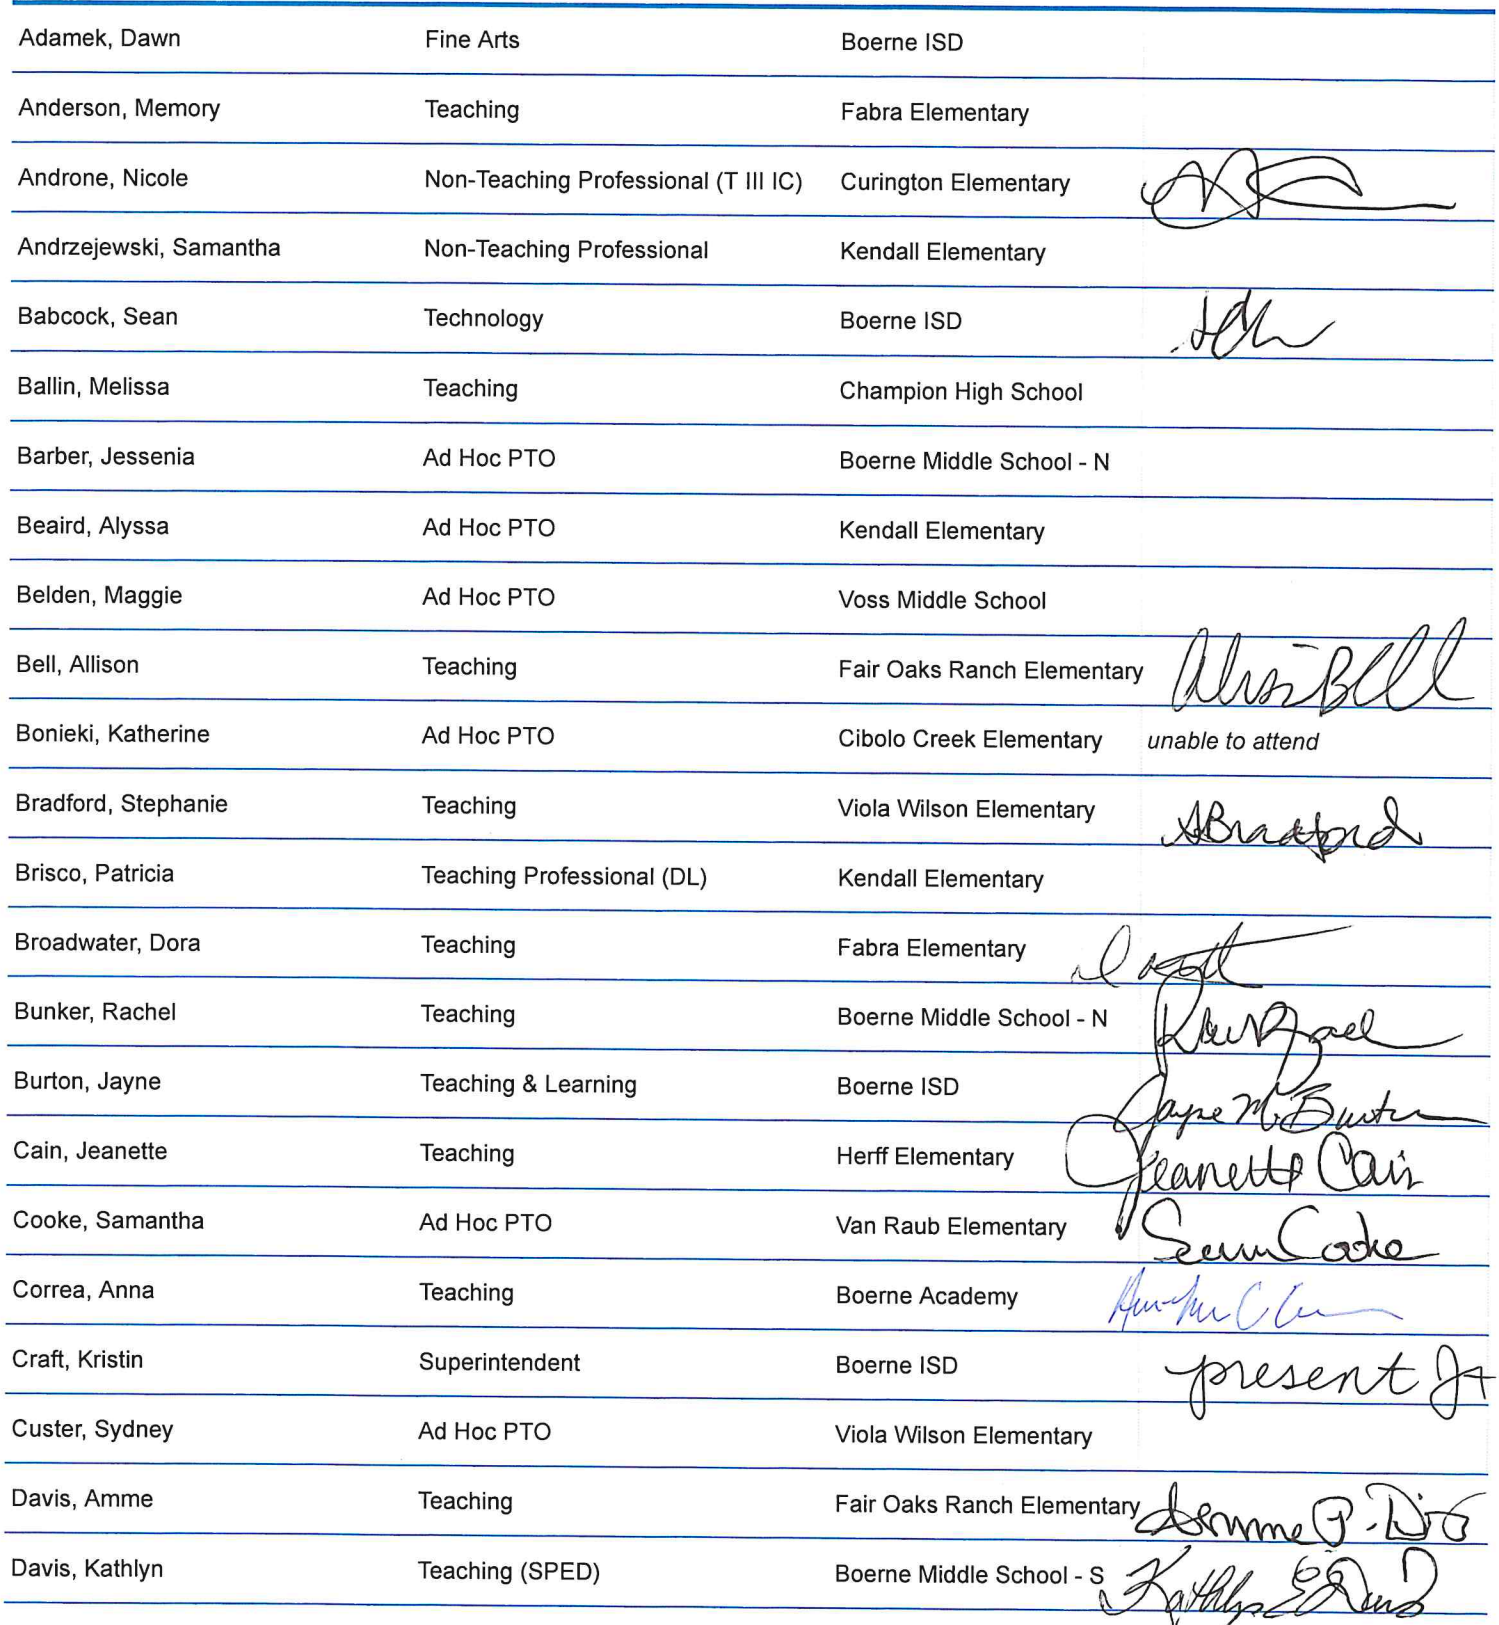 Adamek, Dawn Fine Arts Boerne ISD
Anderson, Memory Teaching Fabra Elementary
Androne, Nicole Non-Teaching Professional (T III IC) Curington Elementary
Andrzejewski, Samantha Non-Teaching Professional Kendall Elementary
Babcock, Sean Technology Boerne ISD
Ballin, Melissa Teaching Champion High School
Barber, Jessenia Ad Hoc PTO Boerne Middle School - N
Beaird, Alyssa Ad Hoc PTO Kendall Elementary
Belden, Maggie Ad Hoc PTO Voss Middle School
Bell, Allison Teaching Fair Oaks Ranch Elementary Bell
Bonieki, Katherine Ad Hoc PTO Cibolo Creek Elementary unable to attend
Bradford, Stephanie Teaching Viola Wilson Elementary SBradford
Brisco, Patricia Teaching Professional (DL) Kendall Elementary
Broadwater, Dora Teaching Fabra Elementary
Bunker, Rachel Teaching Boerne Middle School - N
Burton, Jayne Teaching & Learning Boerne ISD Jayne M. Burton
Cain, Jeanette Teaching Herff Elementary Jeanette Cain
Cooke, Samantha Ad Hoc PTO Van Raub Elementary Cooke
Correa, Anna Teaching Boerne Academy
Craft, Kristin Superintendent Boerne ISD present
Custer, Sydney Ad Hoc PTO Viola Wilson Elementary
Davis, Amme Teaching Fair Oaks Ranch Elementary
Davis, Kathlyn Teaching (SPED) Boerne Middle School - S Kathlyn E Davis